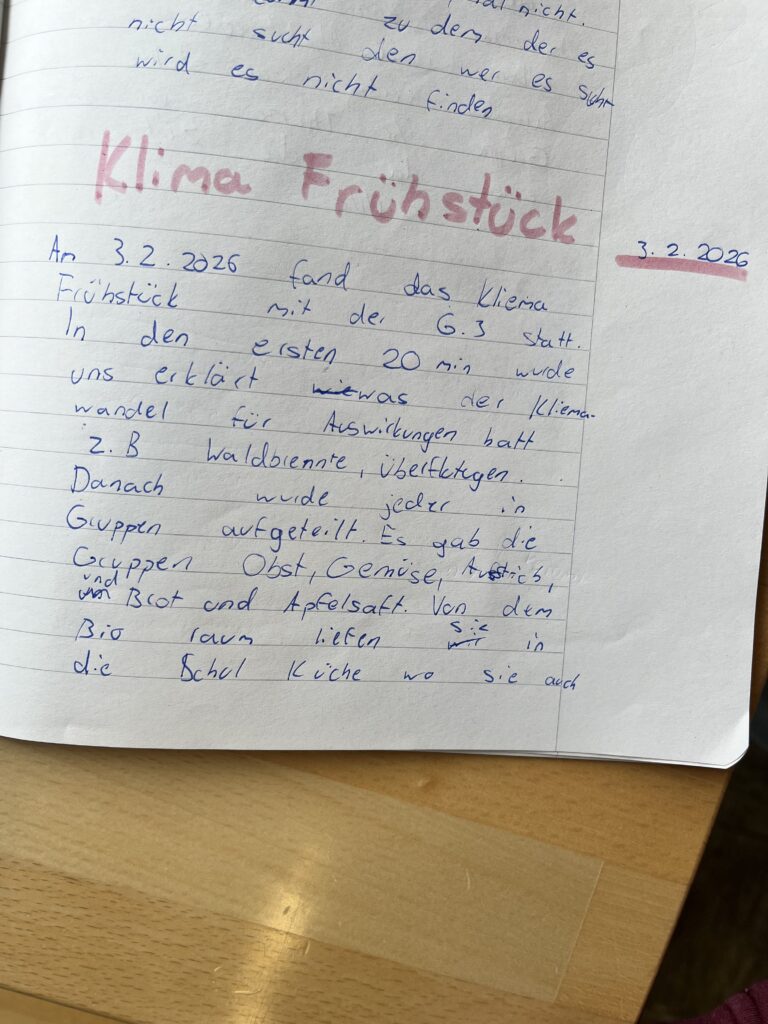 nicht.
zu dem der es
nicht sucht den wer es sucht
wird es nicht finden
Klima Frühstück
3.2.2026
Am 3.2.2026 fand das Kliema
Frühstück mit der G.3 statt.
In den ersten 20 min wurde
uns erklärt wie was der Kliema-
wandel für Auswirkungen hatt
z.B Waldbrennte, überflutugen.
Danach wurde jeder in
Gruppen aufgeteilt. Es gab die
Gruppen Obst, Gemüse, Aufstrich,
und Brot und Apfelsaft. Von dem
Bio raum liefen wir sie in
die Schul Küche wo sie auch